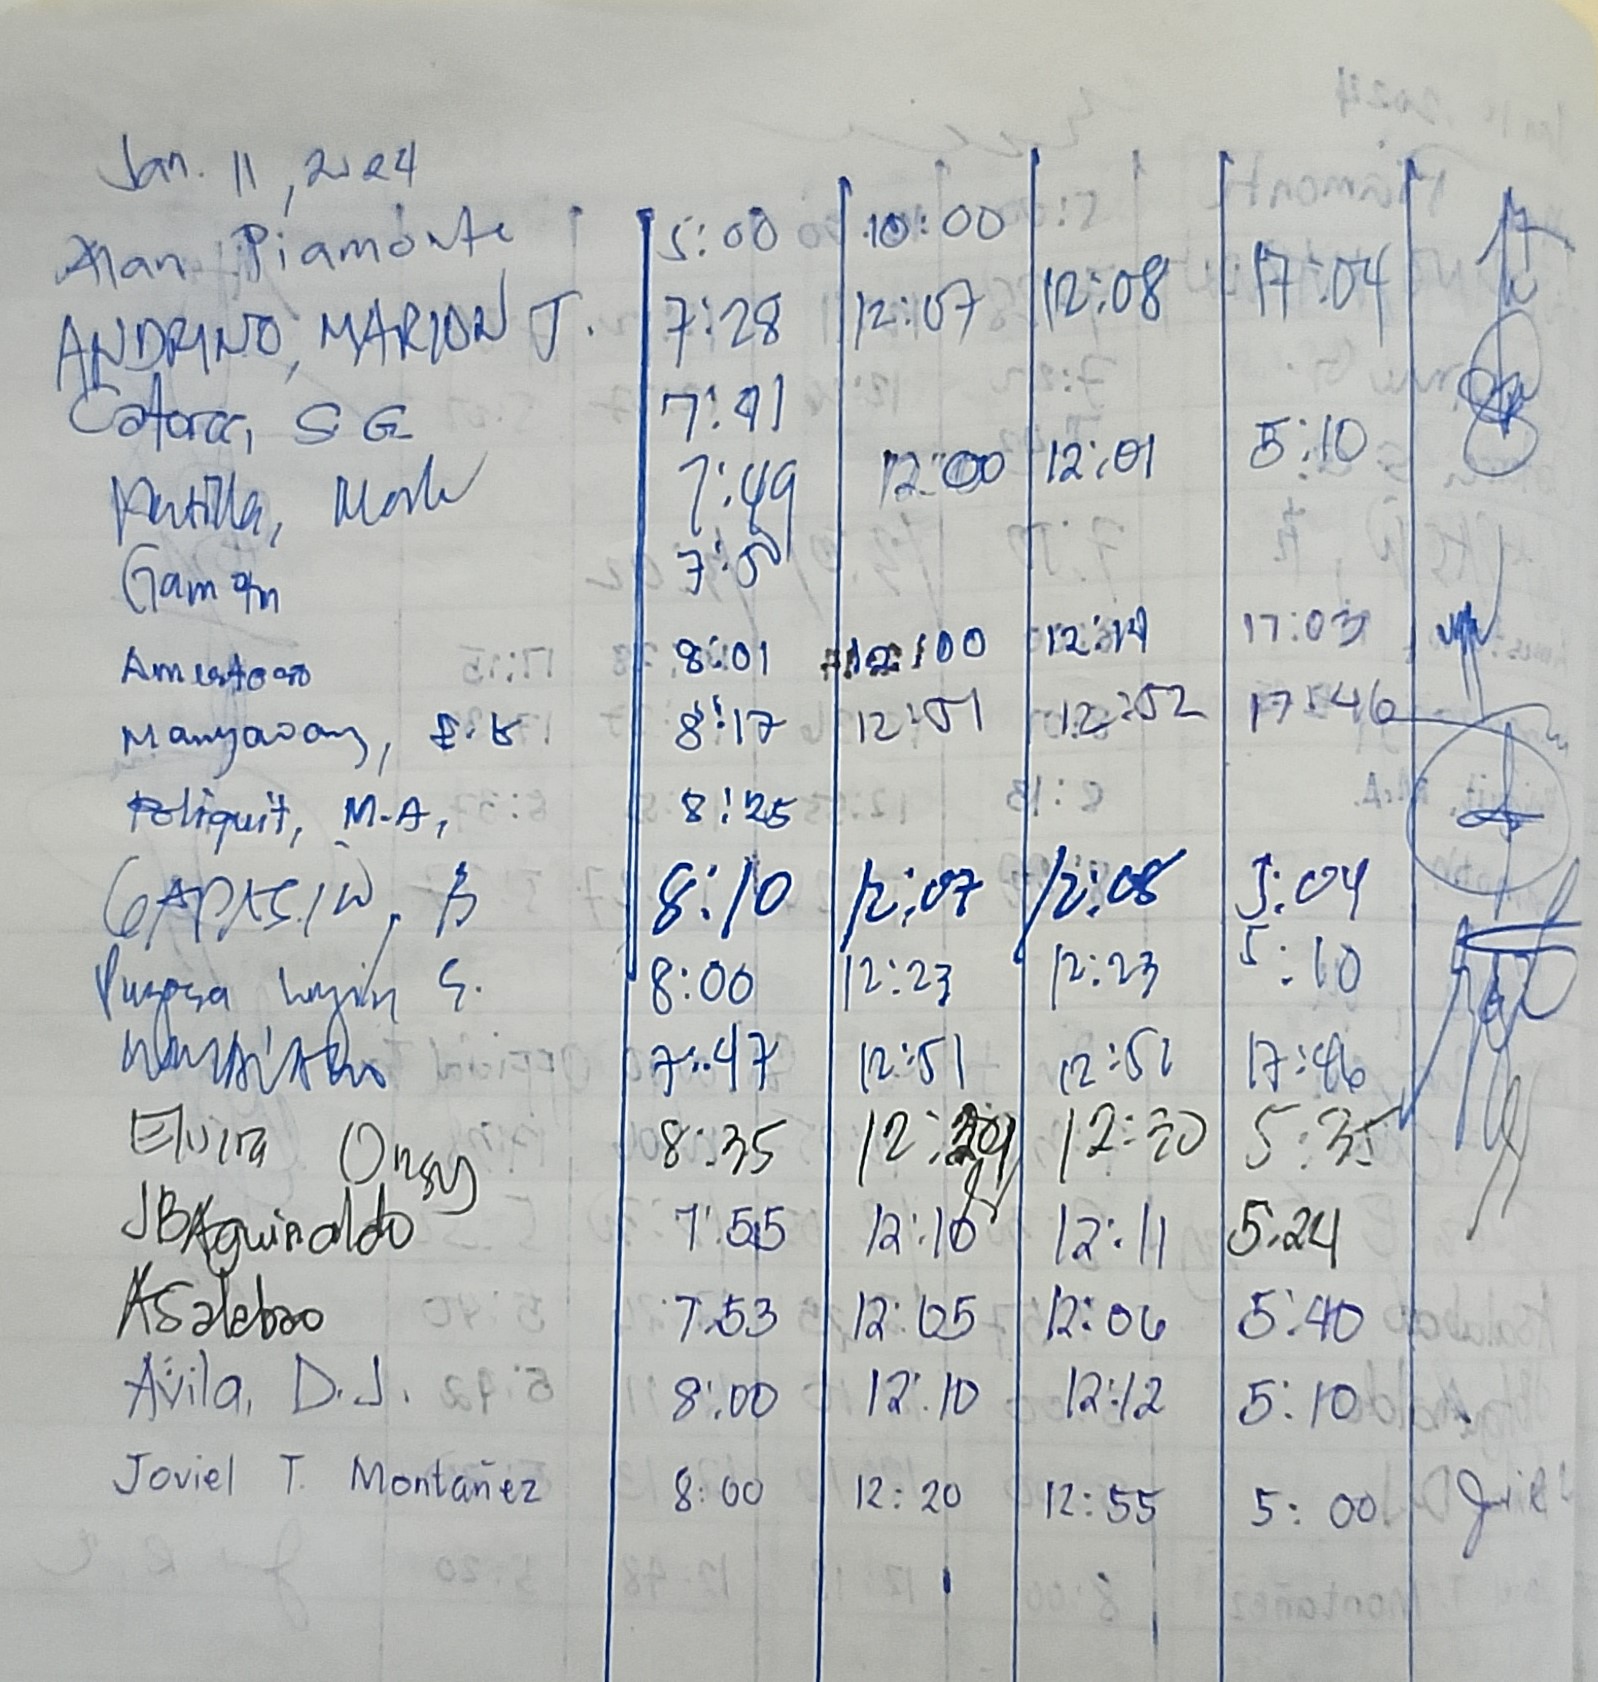 Jan. 11, 2024
Alan Piamonte 5:00 10:00
ANDRINO, MARION J. 7:28 12:07 12:08 17:04
Catorce, S G 7:41
Mark 7:49 12:00 12:01 5:10
Gamon
Amestoso 8:01 12:00 12:14 17:03
Manyaoang, 8:17 12:51 12:52 17:46
Poliquit, M.A, 8:25
8:10 12:07 12:08 5:04
S. 8:00 12:23 12:23 5:10
7:47 12:51 12:51 17:46
Elvira Ongy 8:35 12:29 12:30 5:35
JBAguinaldo 7:55 12:10 12:11 5:24
ASalebao 7:53 12:05 12:06 5:40
Avila, D.J. 8:00 12:10 12:12 5:10
Joviel T. Montañez 8:00 12:20 12:55 5:00